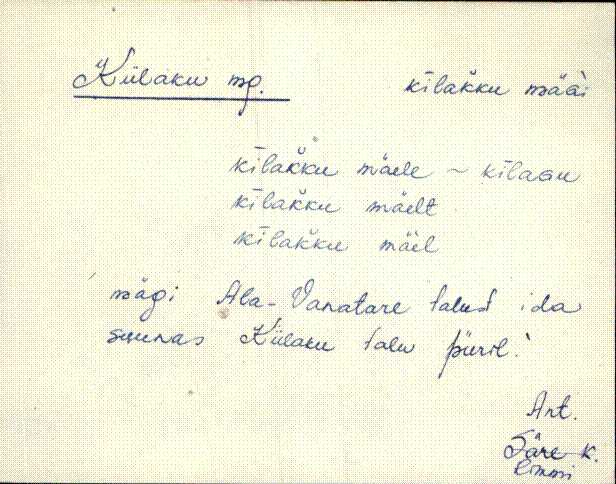 Kiilaku mg. kīlak̆ku mäGi
kīlak̆ku mäele ~ kīlaGu
kīlak̆ku mäelt
kīlak̆ku mäel
mägi Ala-Vanatare talust ida
suunas Kiilaku talu piiril.
Ant.
Säre k.